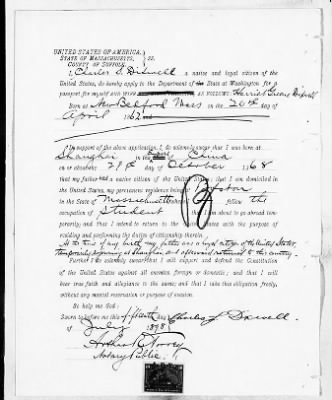 UNITED STATES OF AMERICA,
STATE OF MASSACHUSETTS, SS.
COUNTY OF SUFFOLK.
I, Charles S. a native and legal citizen of the
United States, do hereby apply to the Department of State at Washington for a
passport for myself and wife AS FOLLOWS: Harriet
Born at New Bedford Mass on the 20th day of
April 1862
In support of the above application, I do solemnly swear that I was born at
Shanghai in the China
on or about the 29th day of October 1868
that my father was a native citizen of the United States; that I am domiciled in
the United States, my permanent residence being at Boston
in the State of Massachusetts follow the
occupation of Student that I am about to go abroad tem-
porarily; and that I intend to return to the United States with the purpose of
residing and performing the duties of citizenship therein.
At the time of my birth my father was a legal citizen of the United States,
temporarily at Shanghai and afterward returned to this country.
Further I do solemnly swear that I will support and defend the Constitution
of the United States against all enemies foreign or domestic; and that I will
bear true faith and allegiance to the same; and that I take this obligation freely,
without any mental reservation or purpose of evasion.
So help me God:
Sworn to before me this fifteenth day Charles S.
of July 1898
Notary Public